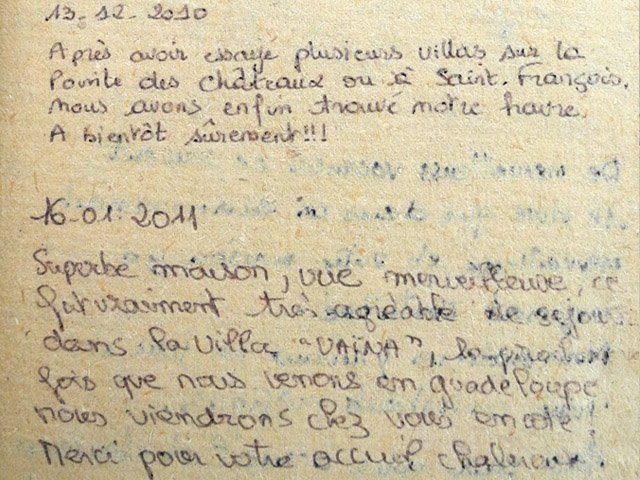 13-12-2010
Après avoir essayé plusieurs villas sur la
Pointe des châteaux ou à Saint. François,
nous avons enfin trouvé notre havre.
A bientôt sûrement!!!
16-01-2011
Superbe maison, vue merveilleuse, ce
fut vraiment très agréable de séjour
dans la villa "VAÏNA", la prochaine
fois que nous venons en guadeloupe
nous viendrons chez vous encore !
Merci pour votre accueil chaleureux.